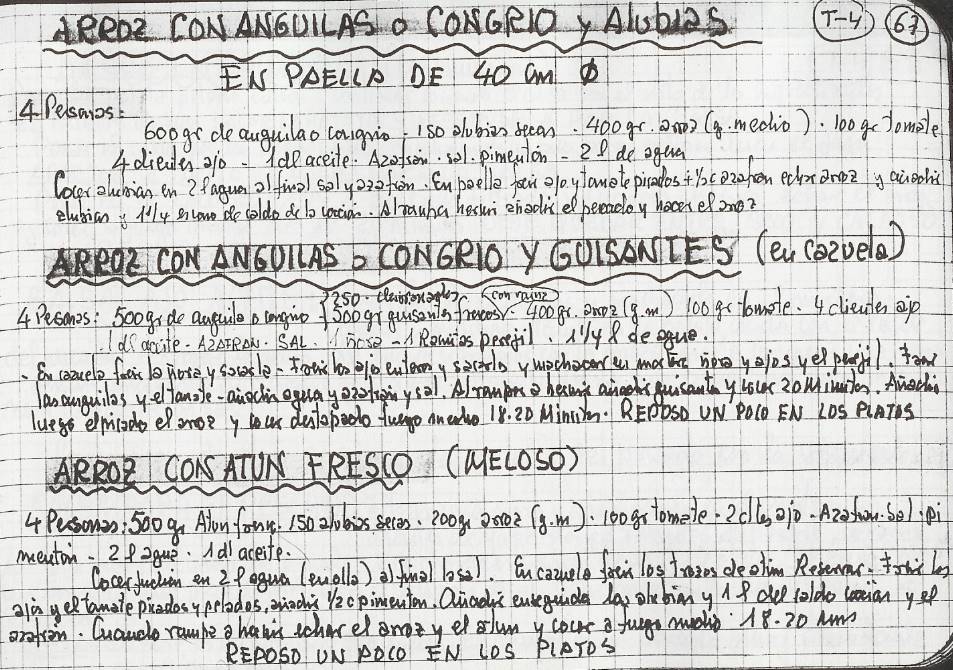 ARROZ CON ANGUILAS o CONGRIO y Alubias T-4 67
EN PAELLA DE 40 cm Ø
4 Personas:
600 gr de anguila o congrio - 150 alubias secas - 400 gr. arroz (g. medio) - 100 gr tomate
4 dientes ajo - 1 dl aceite - Azafrán - sal - pimentón - 2 l de agua
Cocer alubias en 2 l agua al final sal y azafrán. En paella freir ajo y tomate picados + ½ c azafran echar arroz y añadir
alubias y 1 1/4 de caldo de la cocción. Al rampa hervir añadir el pescado y hacer el arroz
ARROZ CON ANGUILAS o CONGRIO Y GUISANTES (en cazuela)
250 - con vaina
4 Personas: 500 gr de anguila o congrio 500 gr guisantes frescos - 400 gr. arroz (g.m) 100 gr tomate - 4 dientes ajo
1 dl aceite - AZAFRAN - SAL - 1 ñora - 1 Ramitas perejil - 1 1/4 l de agua.
- En cazuela freir la ñora y sacarla - freir los ajo enteros y sacarlo y machacar en mortero ñora y ajos y el perejil. freir
las anguilas y el tomate - añadir agua y azafrán y sal. Al rampa a hervir añadir guisantes y cocer 20 Minutos. Añadir
luego el picado el arroz y cocer destapado fuego medio 18-20 Minutos. REPOSO UN POCO EN LOS PLATOS
ARROZ CON ATUN FRESCO (MELOSO)
4 Personas: 500 gr Atun fresc - 150 alubias secas - 200 gr arroz (g.m) - 100 gr tomate - 2 dtes ajo - Azafran - Sal - pi
menton - 2 l agua - 1 dl aceite.
Cocer judias en 2 l agua (en olla) al final la sal. En cazuela freir los trozos de atun Reservar - freir los
ajos y el tomate picados y pelados, añadir ½ c pimenton. Añadir enseguida las alubias y 1 l del caldo cocción y el
azafrán. Cuando rampe a hervir echar el arroz y el atun y cocer a fuego medio 18-20 mns
REPOSO UN POCO EN LOS PLATOS